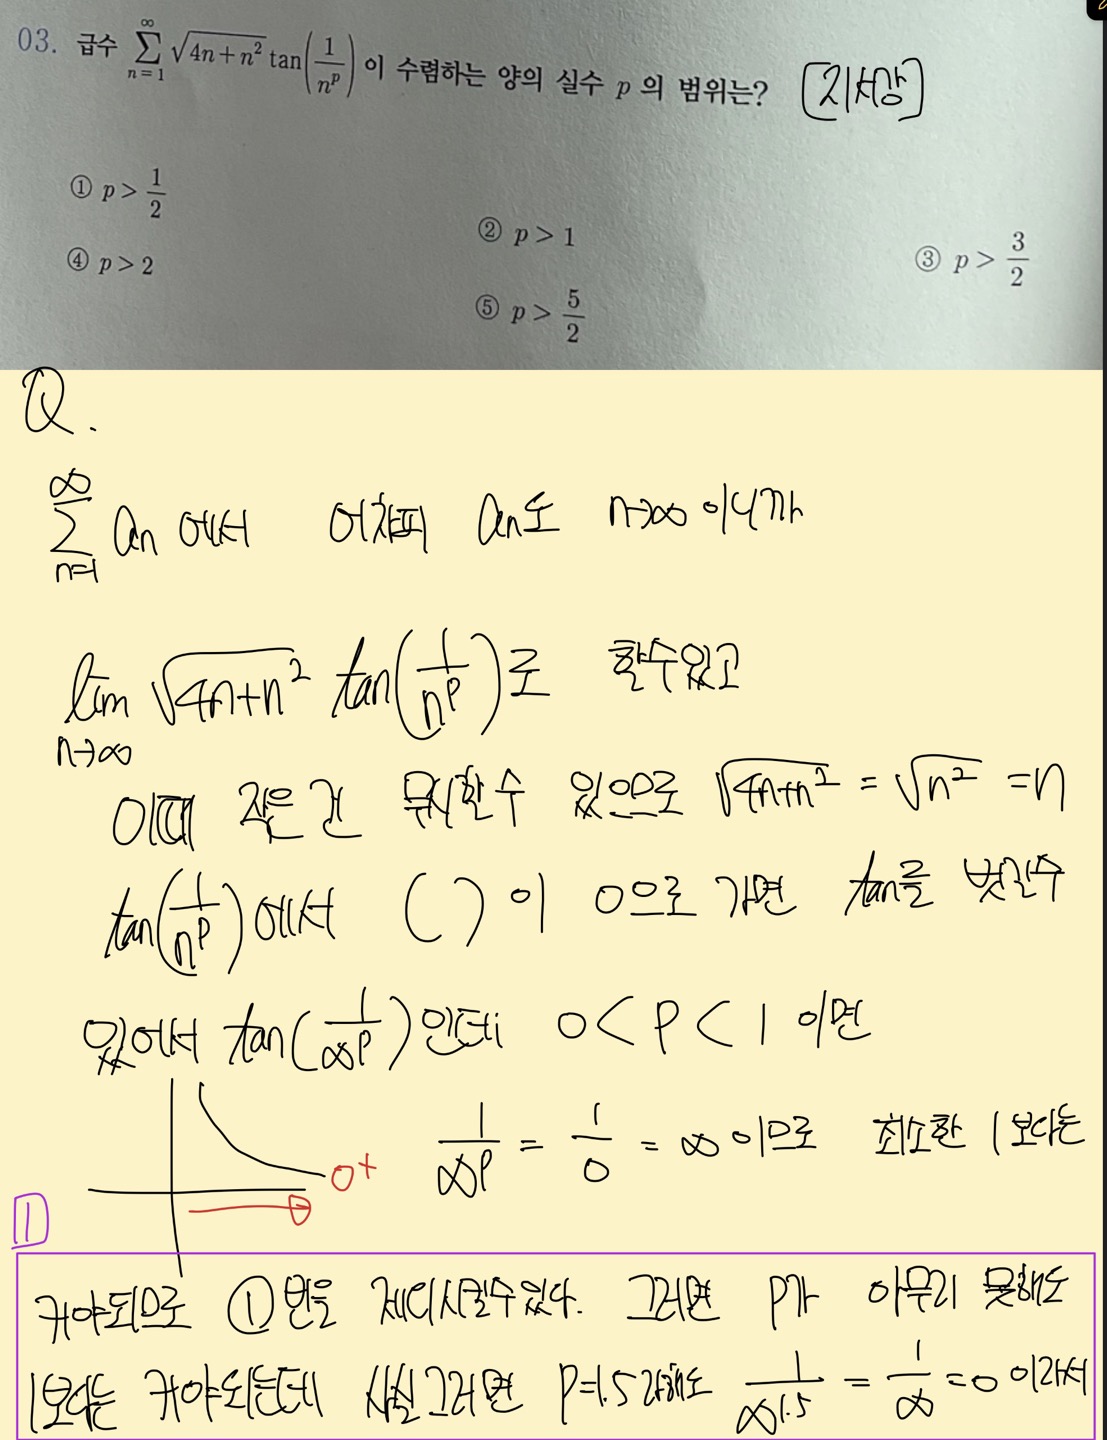 03. 급수 $\sum_{n=1}^{\infty} \sqrt{4n+n^2} \tan\left(\frac{1}{n^p}\right)$ 이 수렴하는 양의 실수 p 의 범위는? [거서강]
① $p > \frac{1}{2}$
② $p > 1$
③ $p > \frac{3}{2}$
④ $p > 2$
⑤ $p > \frac{5}{2}$
Q.
$\sum_{n=1}^{\infty} a_n$ 에서 어차피 $a_n$도 $n \to \infty$ 이니까
$\lim_{n \to \infty} \sqrt{4n+n^2} \tan\left(\frac{1}{n^p}\right)$로 할수있고
이때 작은건 무시할수 있으므로 $\sqrt{4n+n^2} = \sqrt{n^2} = n$
$\tan\left(\frac{1}{n^p}\right)$에서 ( ) 이 0으로 가면 tan를 벗길수
있어서 $\tan\left(\frac{1}{\infty^p}\right)$인데 $0 < p < 1$ 이면
$\frac{1}{\infty^p} = \frac{1}{0} = \infty$ 이므로 최소한 1보다는
0+
1
커야되므로 ①번을 제외시킬수있다. 그러면 p가 아무리 못해도
1보다는 커야되는데 사실그러면 $p=1.5$라해도 $\frac{1}{\infty^{1.5}} = \frac{1}{\infty} = 0$ 이라서